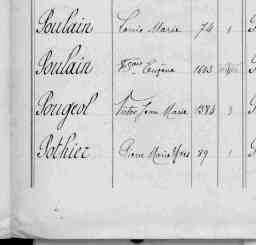 Poulain Louis Marie 74 1
Poulain Eugène 1613
Pougeol Victor Jean Marie 1384 3
Pothier Pierre Marie Yves 89 1